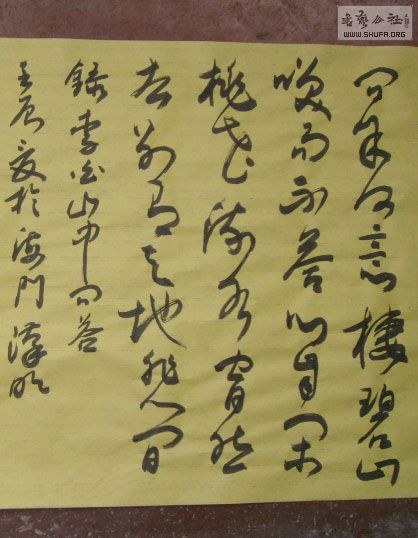 問余何意棲碧山
咲而不答心自閑
桃花流水窅然
去別有天地非人間
錄李白山中問答
壬辰夏於海門
書藝公社
WWW.SHUFA.ORG